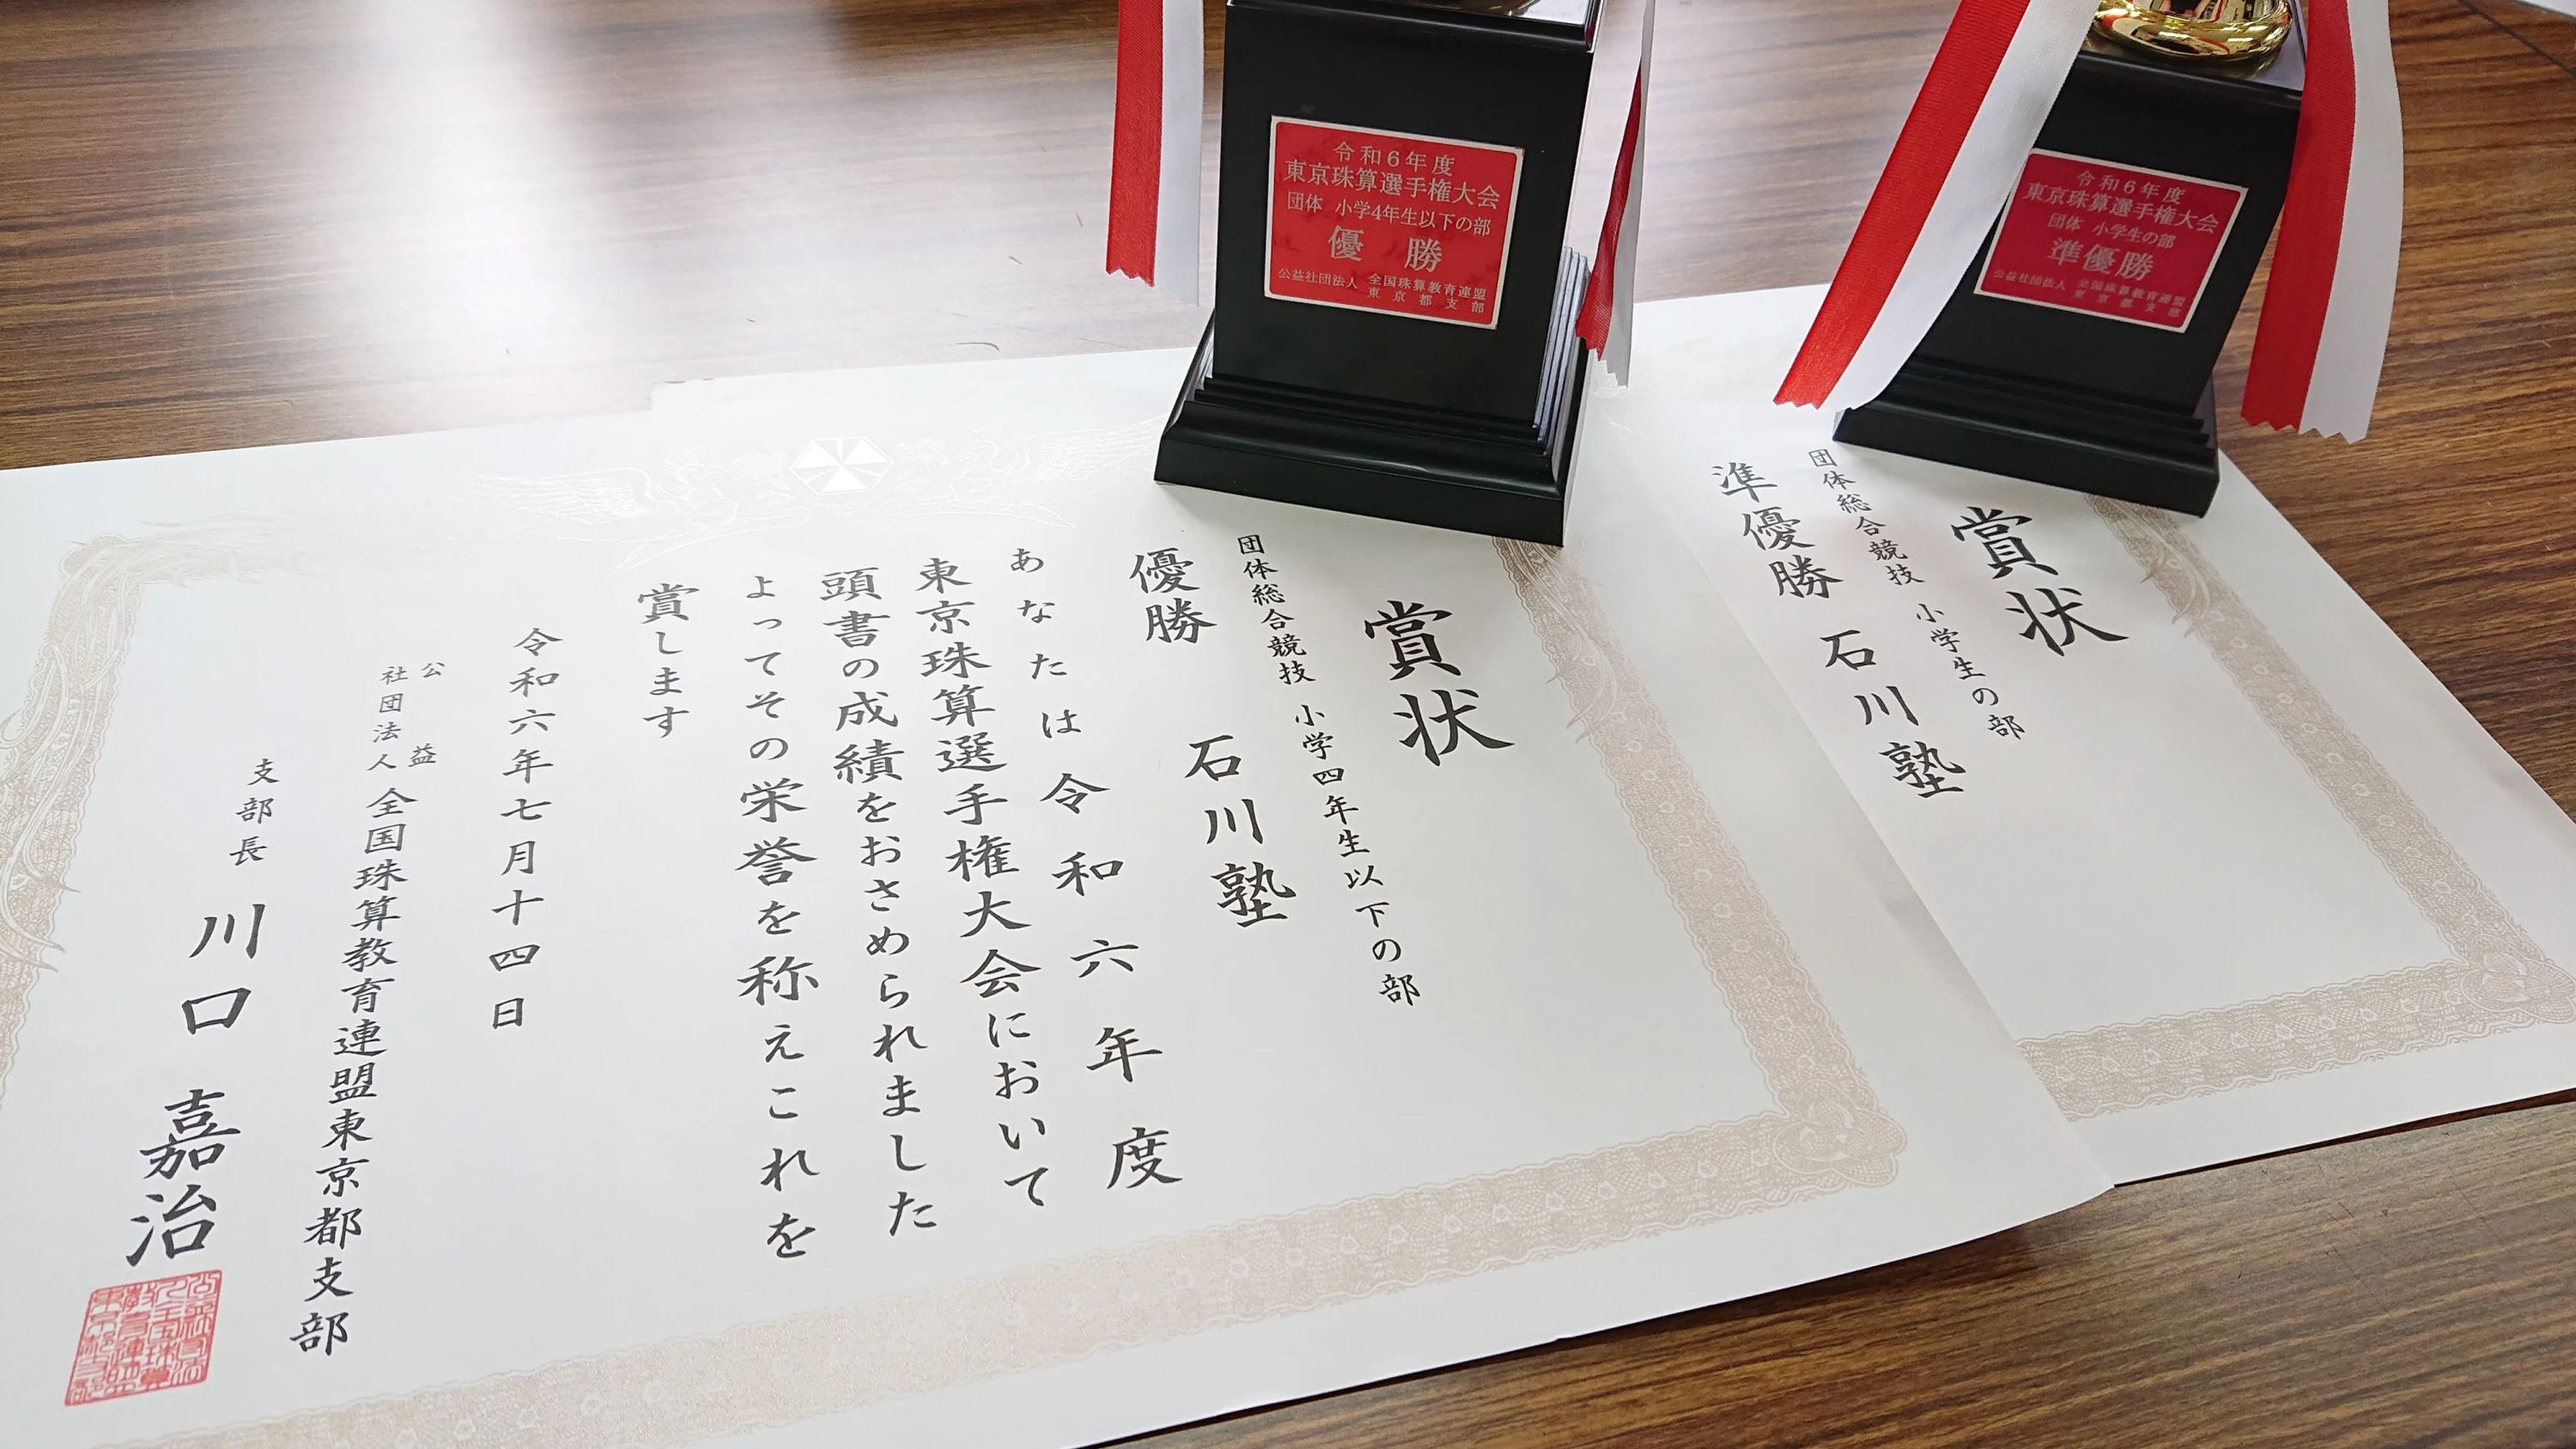 令和6年度
東京珠算選手権大会
団体 小学4年生以下の部
優 勝
公益社団法人 全国珠算教育連盟
東京都支部
令和6年度
東京珠算選手権大会
団体 小学生の部
準優勝
公益社団法人 全国珠算教育連盟
東京都支部
賞状
団体総合競技 小学生の部
準優勝 石川塾
賞状
団体総合競技 小学四年生以下の部
優勝 石川塾
あなたは令和六年度
東京珠算選手権大会において
頭書の成績をおさめられました
よってその栄誉を称えこれを
賞します
令和六年七月十四日
公益社団法人 全国珠算教育連盟東京都支部
支部長 川口嘉治